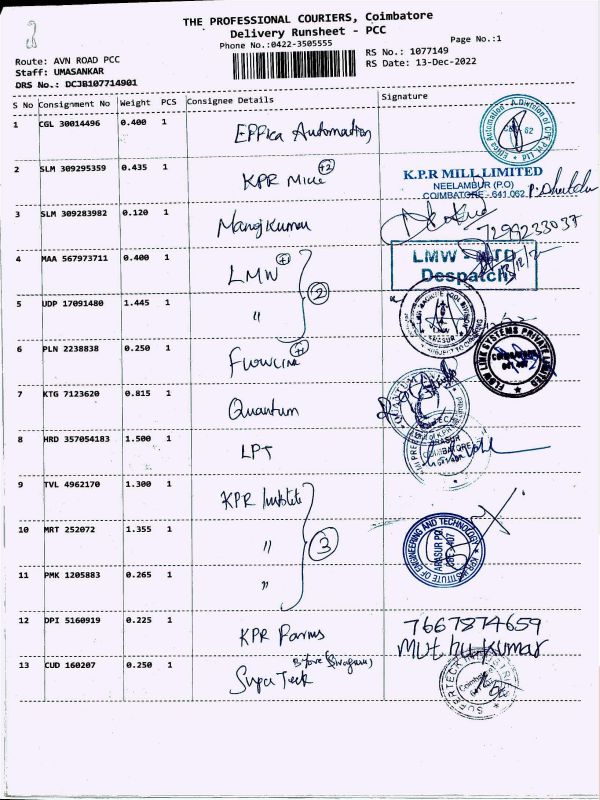 THE PROFESSIONAL COURIERS, Coimbatore
Delivery Runsheet - PCC
Phone No.:0422-3505555
Page No.:1
Route: AVN ROAD PCC
Staff: UMASANKAR
DRS No.: DCJB107714901
RS No.: 1077149
RS Date: 13-Dec-2022
S No Consignment No Weight PCS Consignee Details Signature
1 CGL 30014496 0.400 1 Effica Automation
2 SLM 309295359 0.435 1 KPR Mill +2
K.P.R MILL LIMITED
NEELAMBUR (P.O)
COIMBATORE - 641 062
3 SLM 309283982 0.120 1 Manojkumar
7299233037
4 MAA 567973711 0.400 1 LMW +1
LMW - MTD
Despatch
13/12/2
5 UDP 17091480 1.445 1 "
2
6 PLN 2238838 0.250 1 Flowline
FLOW LINK SYSTEMS PRIVATE LIMITED
COIMBATORE
641 407
7 KTG 7123620 0.815 1 Quantum
8 HRD 357054183 1.500 1 LPT
ARASUR
COIMBATORE
641 407
9 TVL 4962170 1.300 1 KPR Institute
10 MRT 252072 1.355 1 "
3
KPR INSTITUTE OF ENGINEERING AND TECHNOLOGY
ARASUR PO.
CBE - 407
11 PMK 1205883 0.265 1 "
12 DPI 5160919 0.225 1 KPR Farms
7667874659
Muthukumar
13 CUD 160207 0.250 1 Supa Teck